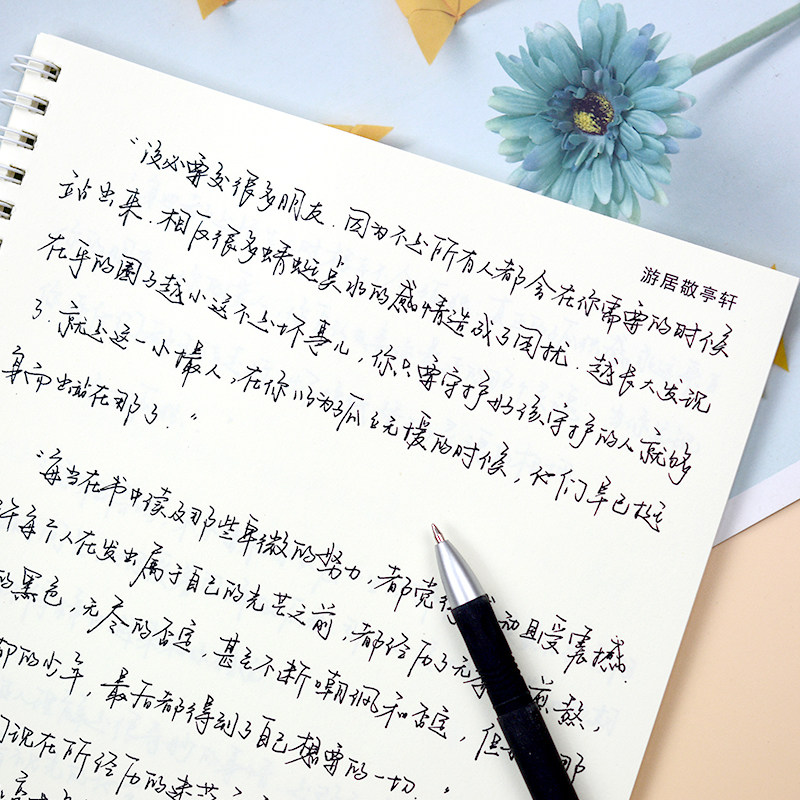 游居敬亭轩
“没必要交很多朋友.因为不是所有人都会在你需要的时候
站出来.相反很多蜻蜓点水的感情造成了困扰.越长大发现
在乎的圈子越小这不是坏事儿,你只要守护好该守护的人就够
了.就是这一小撮人,在你以为孤立无援的时候,他们早已挺
身而出站在那了.”
“每当在书中读及那些卑微的努力,都觉得动且受震撼.
许每个人在发出属于自己的光芒之前,都经历了无煎熬,
的黑色,无尽的否定,甚至不断嘲讽和否定,但那
部的少年,最后都得到了自己想要的一切.”
们现在所经历的